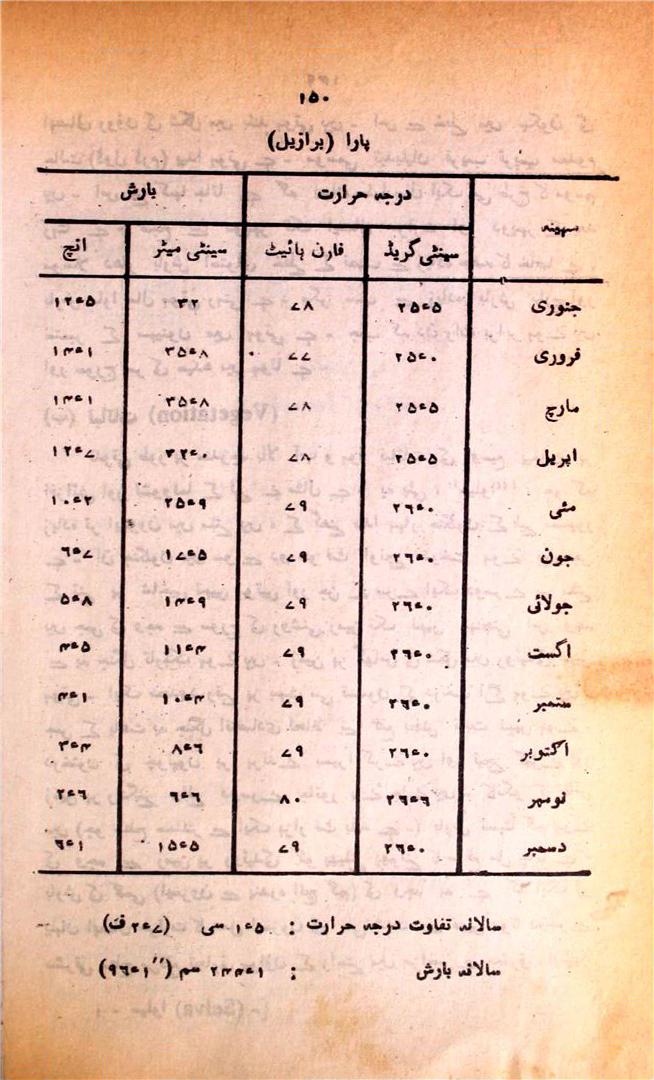 ۱۵۰
پارا (برازیل)
مہینہ درجہ حرارت بارش
سینٹی گریڈ فارن ہائیٹ سینٹی میٹر انچ
جنوری ۲۵ء۵ ۷۸ ۳۲ ۱۲ء۵
فروری ۲۵ء۰ ۷۷ ۳۵ء۸ ۱۴ء۱
مارچ ۲۵ء۵ ۷۸ ۳۵ء۸ ۱۴ء۱
اپریل ۲۵ء۵ ۷۸ ۳۲ء۰ ۱۲ء۷
مئی ۲۶ء۰ ۷۹ ۲۵ء۹ ۱۰ء۲
جون ۲۶ء۰ ۷۹ ۱۷ء۵ ۶ء۷
جولائی ۲۶ء۰ ۷۹ ۱۴ء۹ ۵ء۸
اگست ۲۶ء۰ ۷۹ ۱۱ء۴ ۴ء۵
ستمبر ۲۶ء۰ ۷۹ ۱۰ء۴ ۴ء۱
اکتوبر ۲۶ء۰ ۷۹ ۸ء۶ ۳ء۴
نومبر ۲۶ء۶ ۸۰ ۶ء۶ ۲ء۶
دسمبر ۲۶ء۰ ۷۹ ۱۵ء۵ ۶ء۱
سالانہ تفاوت درجہ حرارت : ۱ء۵ سی (۲ء۷ ف)
سالانہ بارش : ۲۴۴ء۱ سم (۹۶ء۱")